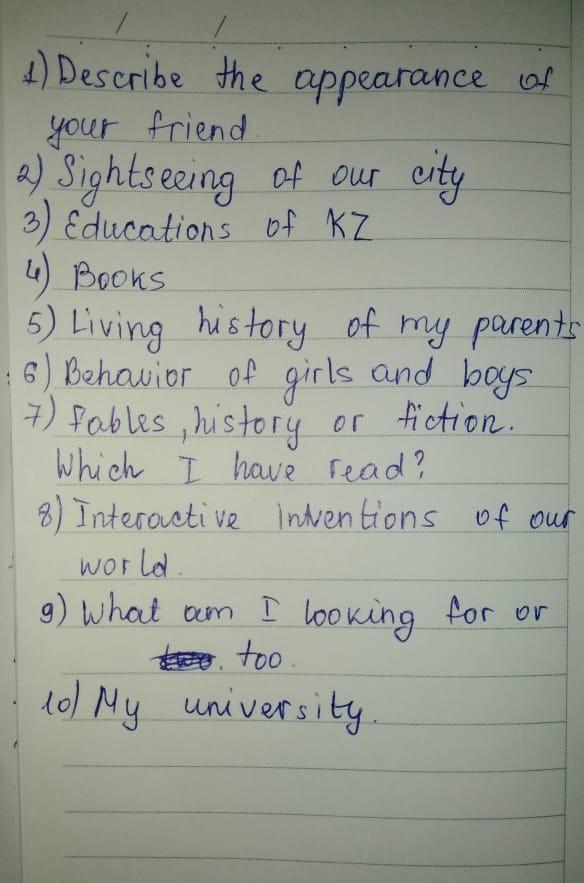 1) Describe the appearance of
your friend.
2) Sightseeing of our city
3) Educations of KZ
4) Books
5) Living history of my parents
6) Behavior of girls and boys
7) Fables, history or fiction.
Which I have read?
8) Interactive inventions of our
world.
9) What am I looking for or
too.
10) My university.